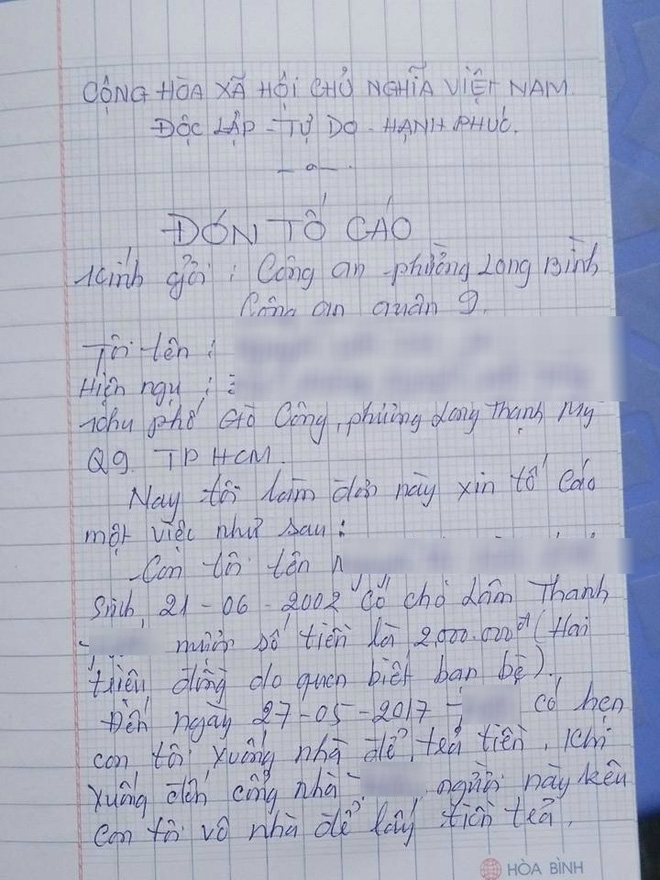 CỘNG HÒA XÃ HỘI CHỦ NGHĨA VIỆT NAM
ĐỘC LẬP - TỰ DO - HẠNH PHÚC.
ĐƠN TỐ CÁO
Kính gởi : Công an phường Long Bình
Công an quận 9.
Tôi tên :
Hiện ngụ :
Khu phố Gò Công, phường Long Thạnh Mỹ
Q9. TP HCM.
Nay tôi làm đơn này xin tố cáo
một việc như sau :
Con tôi tên
Sinh, 21-06-2002 có cho Lâm Thanh
mượn số tiền là 2.000.000đ (Hai
triệu đồng do quen biết bạn bè).
Đến ngày 27-05-2017 có hẹn
con tôi xuống nhà để trả tiền. Khi
xuống đến cổng nhà , người này kêu
con tôi vô nhà để lấy tiền trả.
HÒA BÌNH